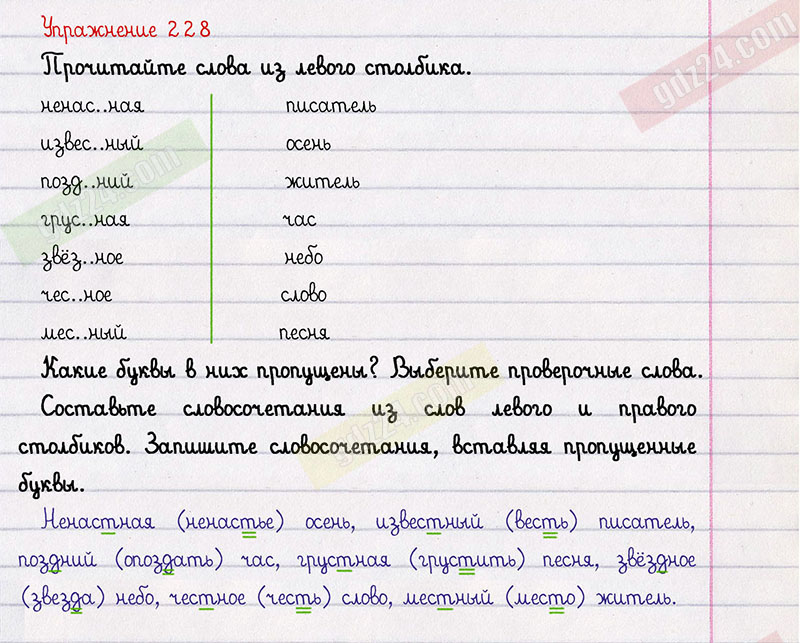 Упражнение 228
Прочитайте слова из левого столбика.
ненас..ная писатель
извес..ный осень
позд..ний житель
грус..ная час
звёз..ное небо
чес..ное слово
мес..ный песня
Какие буквы в них пропущены? Выберите проверочные слова.
Составьте словосочетания из слов левого и правого
столбиков. Запишите словосочетания, вставляя пропущенные
буквы.
Ненастная (ненастье) осень, известный (весть) писатель,
поздний (опоздать) час, грустная (грустить) песня, звёздное
(звезда) небо, честное (честь) слово, местный (место) житель.
gdz24.com
gdz24.com
gdz24.com